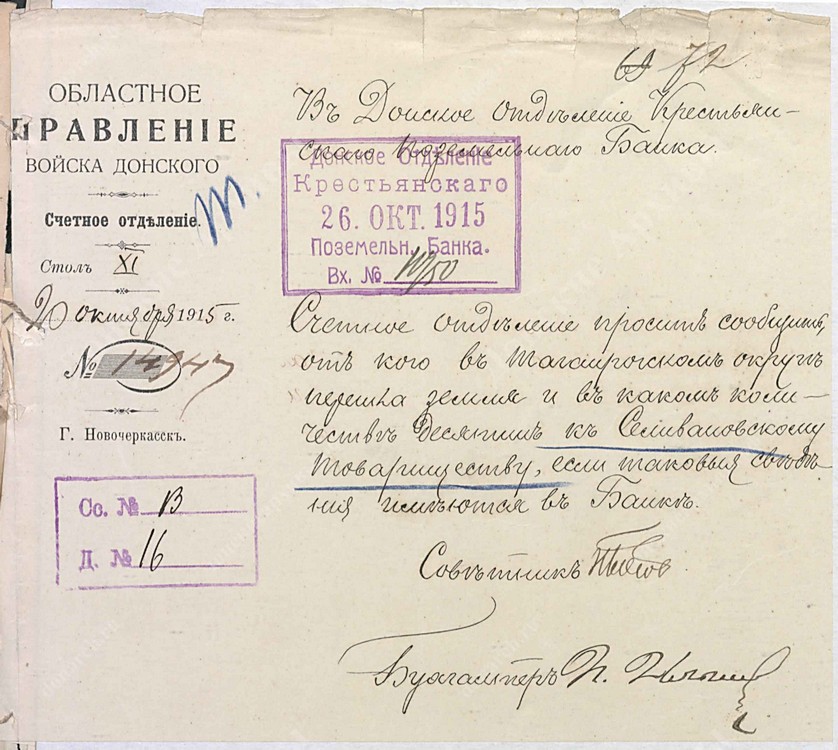 72
ОБЛАСТНОЕ
ПРАВЛЕНІЕ
ВОЙСКА ДОНСКОГО
Счетное отдѣленіе.
Столъ XI
20 октября 1915 г.
№ 14947
Г. Новочеркасскъ.
Св. № В
Д. № 16
Въ Донское отдѣленіе Крестьян-
скаго Поземельнаго Банка.
Донское Отдѣленіе
Крестьянскаго
26. ОКТ. 1915
Поземельн. Банка.
Вх. №
Счетное отдѣленіе проситъ сообщить,
отъ кого въ Таганрогскомъ округѣ
перешла земля и въ какомъ коли-
чествѣ десятинъ къ Селивановскому
Товариществу, если таковыя свѣдѣ-
нія имѣются въ Банкѣ.
Совѣтникъ
Бухгалтеръ